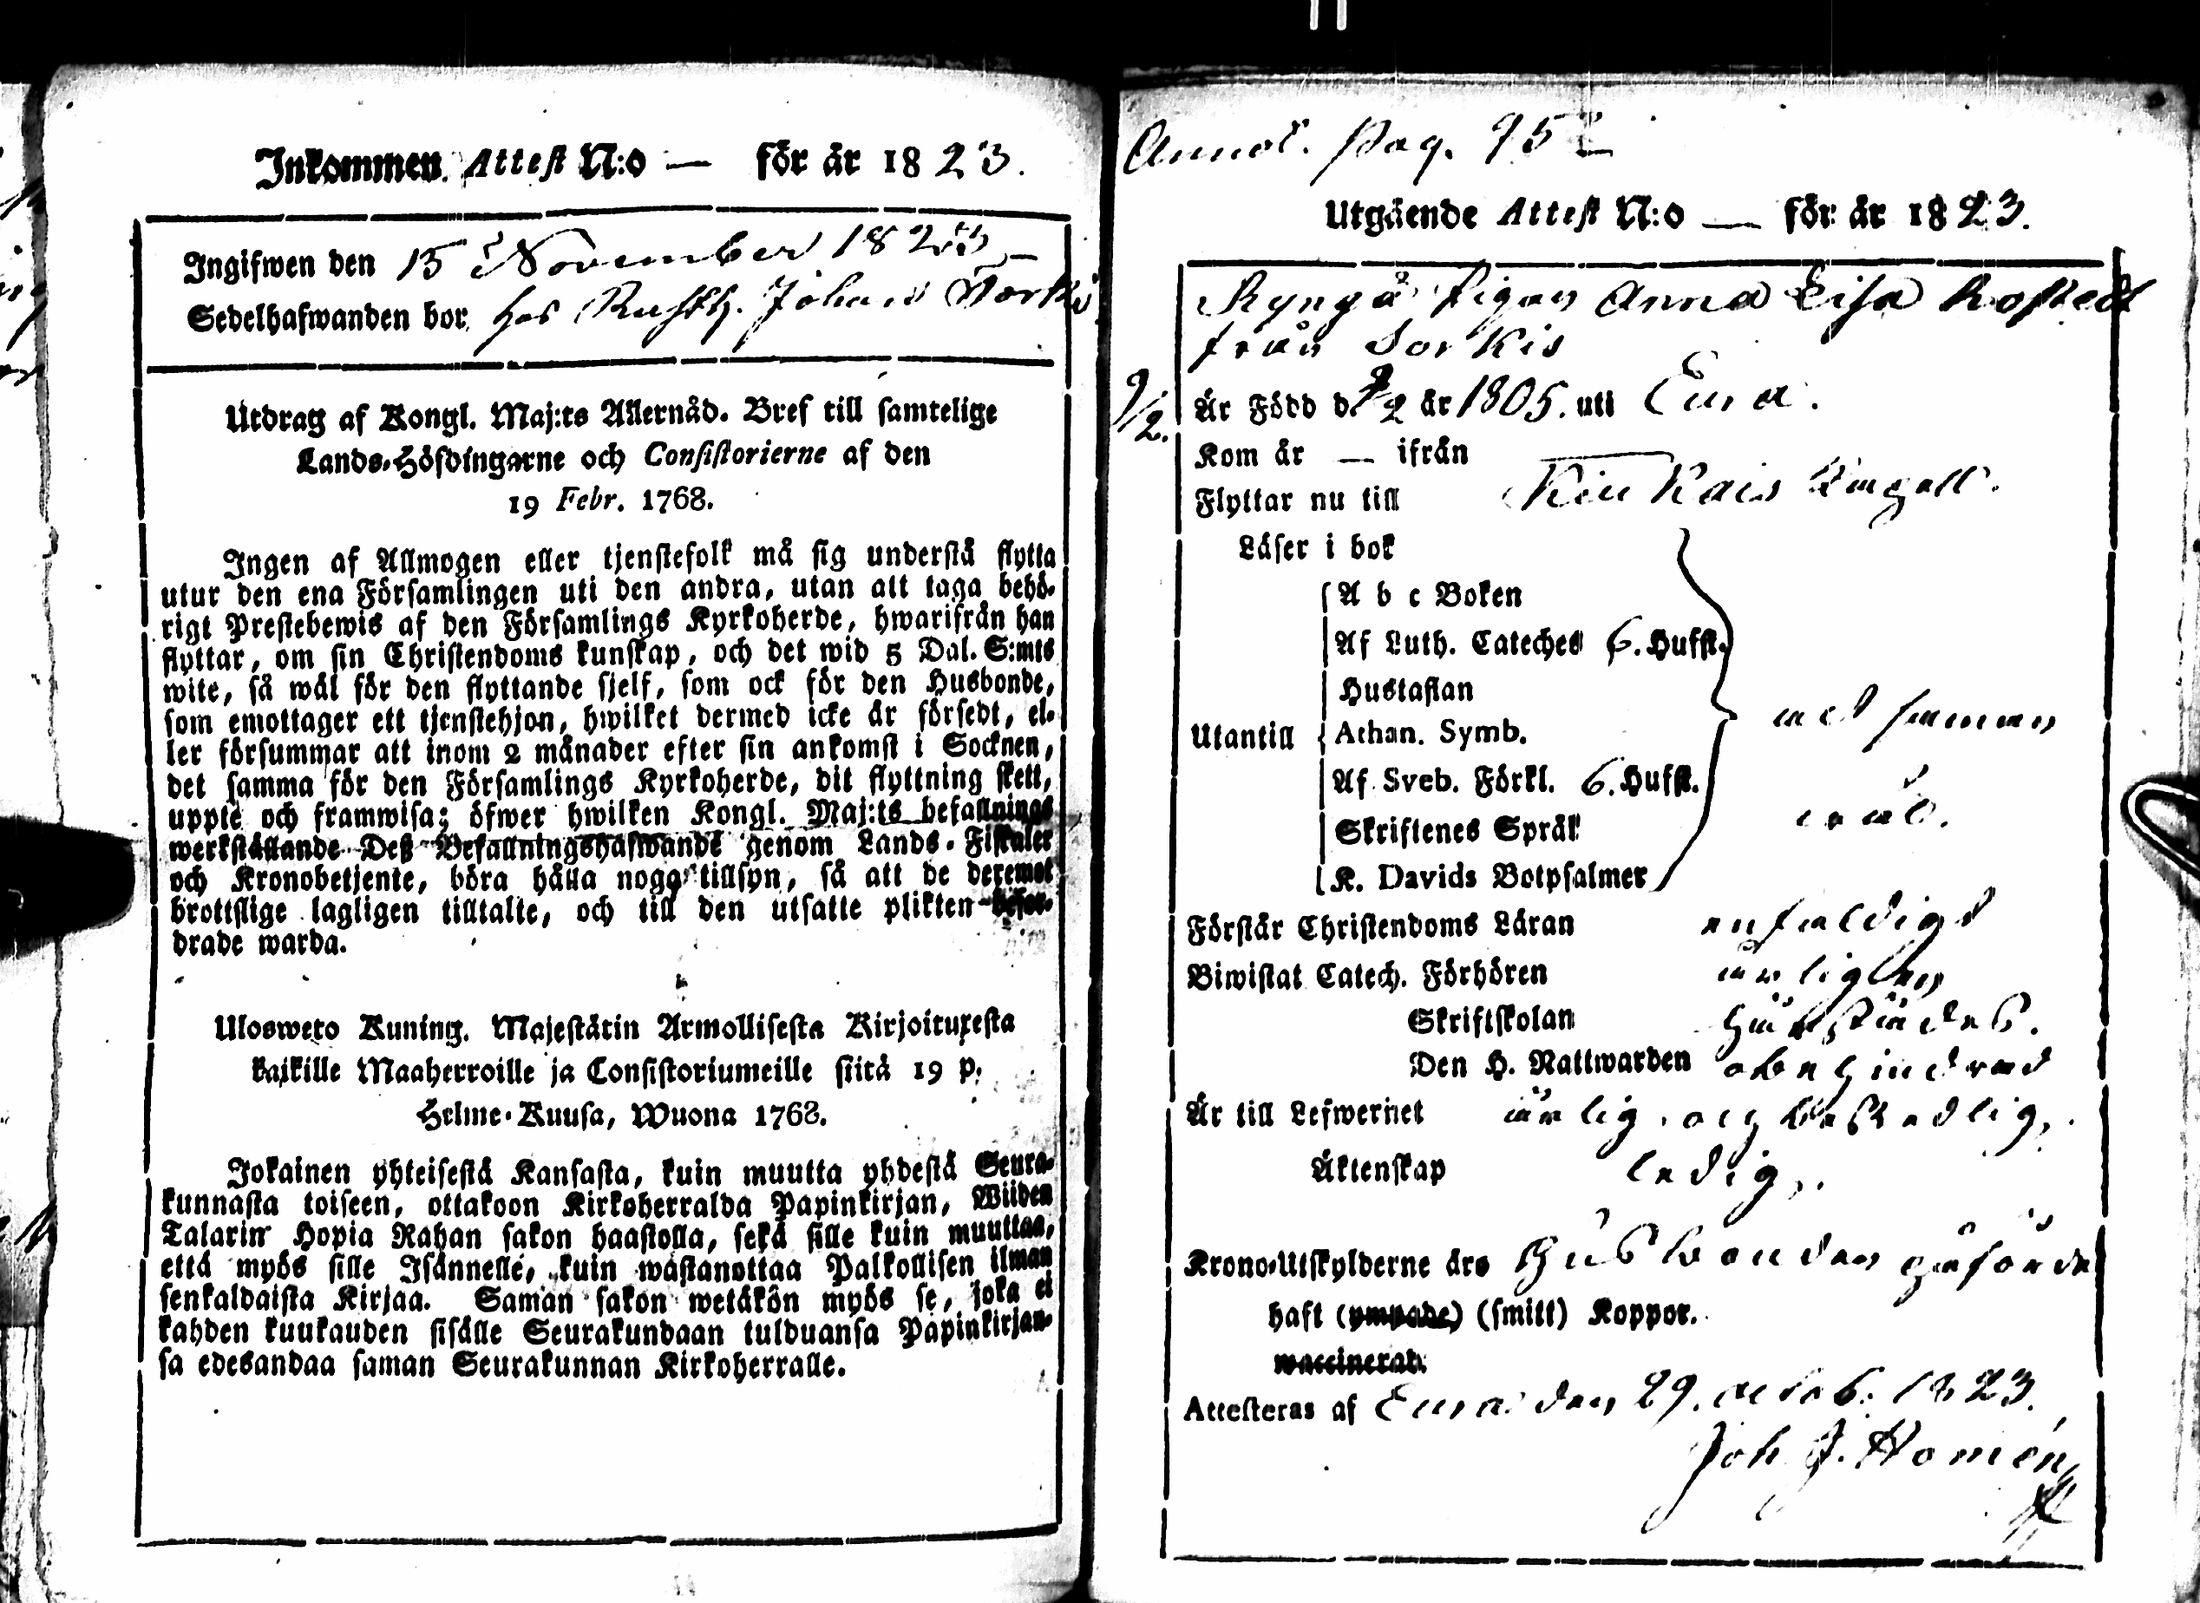 Inkommen Attest N:o — för år 1823.
Ingifwen den 15 November 1823
Sedelhafwanden bor hos Rusth. Johan
Utdrag af Kongl. Maj:ts Allernåd. Bref till samtelige
Lands-Höfdingarne och Consistorierne af den
19 Febr. 1768.
Ingen af Allmogen eller tjenstefolk må sig understå flytta
utur den ena Församlingen uti den andra, utan att taga behö-
rigt Prestebewis af den Församlings Kyrkoherde, hwarifrån han
flyttar, om sin Christendoms kunskap, och det wid 5 Dal. S:mts
wite, så wäl för den flyttande sjelf, som ock för den Husbonde,
som emottager ett tjenstehjon, hwilket dermed icke är försedt, el-
ler försummar att inom 2 månader efter sin ankomst i Socknen,
det samma för den Församlings Kyrkoherde, dit flyttning skett,
uppte och framwisa; öfwer hwilken Kongl. Maj:ts befallnings
werkställande Deß Befallningshafwande genom Lands-Fiskaler
och Kronobetjente, böra hålla noga tillsyn, så att de deremot
brottslige lagligen tilltalte, och till den utsatte plikten befor-
drade warda.
Ulosweto Kuning. Majestätin Armollisesta Kirjoituxesta
kaikille Maaherroille ja Consistoriumeille siitä 19 p.
Helme-Kuusa, Wuona 1768.
Jokainen yhteisestä Kansasta, kuin muutta yhdestä Seura-
kunnasta toiseen, ottakoon Kirkoherralda Papinkirjan, Wiiden
Talarin Hopia Rahan sakon haastolla, sekä sille kuin muuttaa,
että myös sille Isännelle, kuin wastanottaa Palkollisen ilman
senkaldaista Kirjaa. Saman sakon wetäkön myös se, joka ei
kahden kuukauden sisälle Seurakundaan tulduansa Papinkirjan-
sa edesandaa saman Seurakunnan Kirkoherralle.
Annot. Pag. 95
Utgående Attest N:o — för år 1823.
Pigan Anna Lisa
från Sorkis
9/2. Är Född d 9/2 år 1805. uti Eura.
Kom år — ifrån
Flyttar nu till Kiukais Capell.
Läser i bok
A b c Boken
Af Luth. Cateches 6. Hufst.
Hustaflan
Utantill Athan. Symb. med samman
Af Sveb. Förkl. 6. Hufst.
Skriftenes Språk
K. Davids Botpsalmer
Förstår Christendoms Läran enfaldigt
Biwistat Catech. Förhören årligen
Skriftskolan
Den H. Nattwarden obehindrad
Är till Lefwernet ärlig och beskedlig.
Äktenskap ledig.
Krono-Utskylderne äro Husbonden påförde
haft (ympade) (smitt) Koppor.
waccinerad.
Attesteras af Eura den 29. octob. 1823.
Joh J. Homén